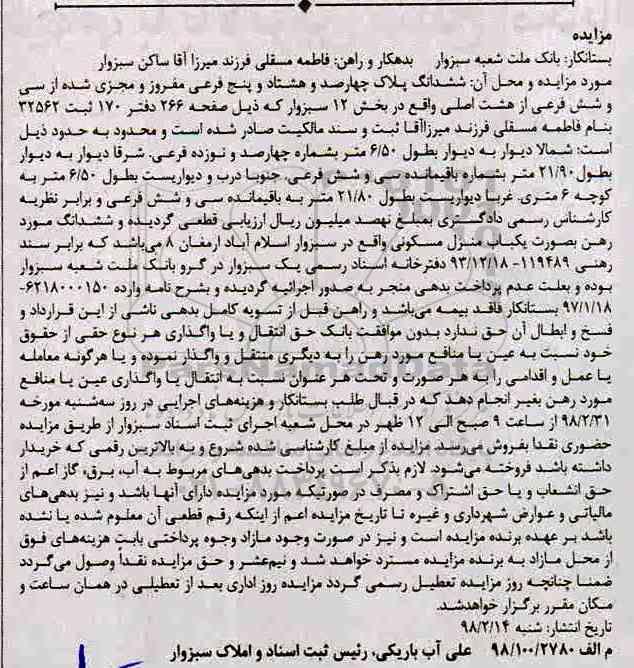 مزایده
بستانکار: بانک ملت شعبه سبزوار بدهکار و راهن: فاطمه مسقلی فرزند میرزا آقا ساکن سبزوار
مورد مزایده و محل آن: ششدانگ پلاک چهارصد و هشتاد و پنج فرعی مفروز و مجزی شده از سی
و شش فرعی از هشت اصلی واقع در بخش ۱۲ سبزوار که ذیل صفحه ۲۶۶ دفتر ۱۷۰ ثبت ۳۲۵۶۲
بنام فاطمه مسقلی فرزند میرزاآقا ثبت و سند مالکیت صادر شده است و محدود به حدود ذیل
است: شمالا دیوار به دیوار بطول ۶/۵۰ متر بشماره چهارصد و نوزده فرعی. شرقا دیوار به دیوار
بطول ۲۱/۹۰ متر بشماره باقیمانده سی و شش فرعی. جنوبا درب و دیواریست بطول ۶/۵۰ متر به
کوچه ۶ متری. غربا دیواریست بطول ۲۱/۸۰ متر به باقیمانده سی و شش فرعی و برابر نظریه
کارشناس رسمی دادگستری بمبلغ نهصد میلیون ریال ارزیابی قطعی گردیده و ششدانگ مورد
رهن بصورت یکباب منزل مسکونی واقع در سبزوار اسلام آباد ارمغان ۸ می‌باشد که برابر سند
رهنی ۱۱۹۴۸۹- ۹۳/۱۲/۱۸ دفترخانه اسناد رسمی یک سبزوار در گرو بانک ملت شعبه سبزوار
بوده و بعلت عدم پرداخت بدهی منجر به صدور اجرائیه گردیده و بشرح نامه وارده ۶۲۱۸۰۰۰۱۵۰-
۹۷/۱/۱۸ بستانکار فاقد بیمه می‌باشد و راهن قبل از تسویه کامل بدهی ناشی از این قرارداد و
فسخ و ابطال آن حق ندارد بدون موافقت بانک حق انتقال و یا واگذاری هر نوع حقی از حقوق
خود نسبت به عین یا منافع مورد رهن را به دیگری منتقل و واگذار نموده و یا هرگونه معامله
یا عمل و اقدامی را به هر صورت و تحت هر عنوان نسبت به انتقال یا واگذاری عین یا منافع
مورد رهن بغیر انجام دهد که در قبال طلب بستانکار و هزینه‌های اجرایی در روز سه‌شنبه مورخه
۹۸/۲/۳۱ از ساعت ۹ صبح الی ۱۲ ظهر در محل شعبه اجرای ثبت اسناد سبزوار از طریق مزایده
حضوری نقدا بفروش می‌رسد. مزایده از مبلغ کارشناسی شده شروع و به بالاترین رقمی که خریدار
داشته باشد فروخته می‌شود. لازم بذکر است پرداخت بدهی‌های مربوط به آب، برق، گاز اعم از
حق انشعاب و یا حق اشتراک و مصرف در صورتیکه مورد مزایده دارای آنها باشد و نیز بدهی‌های
مالیاتی و عوارض شهرداری و غیره تا تاریخ مزایده اعم از اینکه رقم قطعی آن معلوم شده یا نشده
باشد بر عهده برنده مزایده است و نیز در صورت وجود مازاد وجوه پرداختی بابت هزینه‌های فوق
از محل مازاد به برنده مزایده مسترد خواهد شد و نیم‌عشر و حق مزایده نقداً وصول می‌گردد
ضمنا چنانچه روز مزایده تعطیل رسمی گردد مزایده روز اداری بعد از تعطیلی در همان ساعت و
مکان مقرر برگزار خواهدشد.
تاریخ انتشار: شنبه ۹۸/۲/۱۴
م الف ۹۸/۱۰۰/۲۷۸۰ علی آب باریکی، رئیس ثبت اسناد و املاک سبزوار